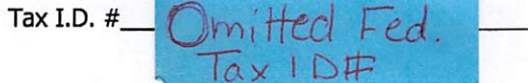 Tax I.D. # Omitted Fed.
Tax ID#